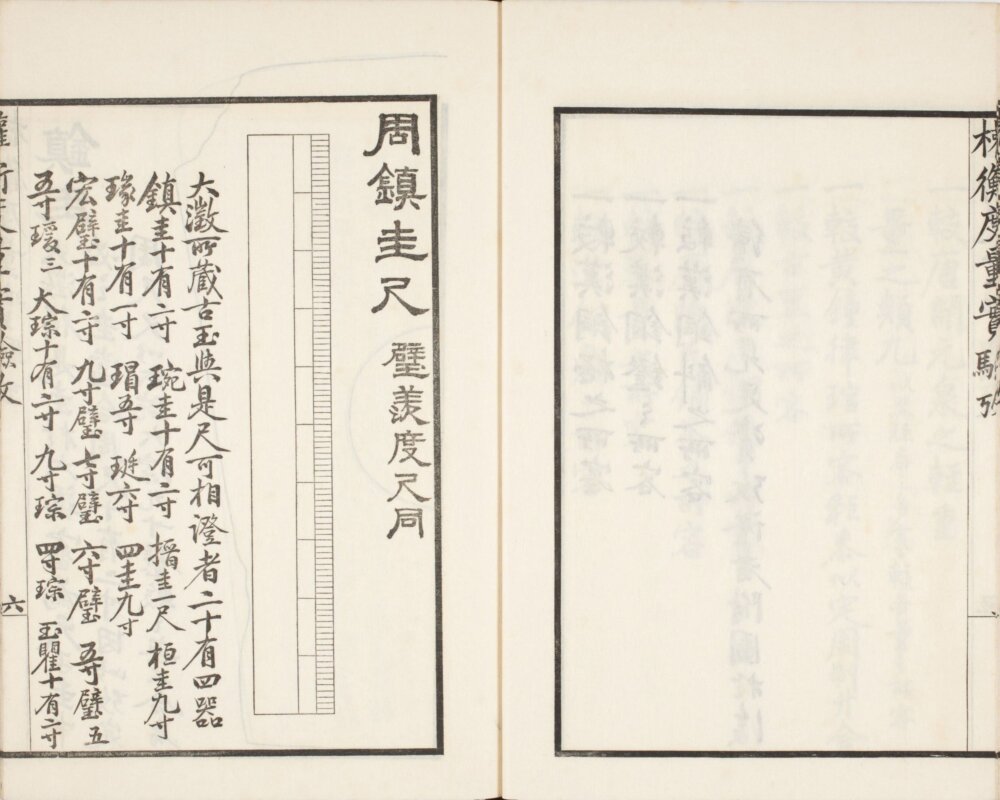 權衡度量實驗攷
周鎮圭尺 璧羨度尺同
大澂所藏古玉與是尺可相澄者二十有四器
鎮圭十有二寸 琬圭十有二寸 搢圭一尺 桓圭九寸
瑑圭十有一寸 瑁五寸 珽六寸 四圭九寸
宏璧十有二寸 九寸璧 七寸璧 六寸璧 五寸璧五
五寸瑗三 大琮十有二寸 九寸琮 四寸琮 玉瞿十有二寸
權衡度量實驗攷 六